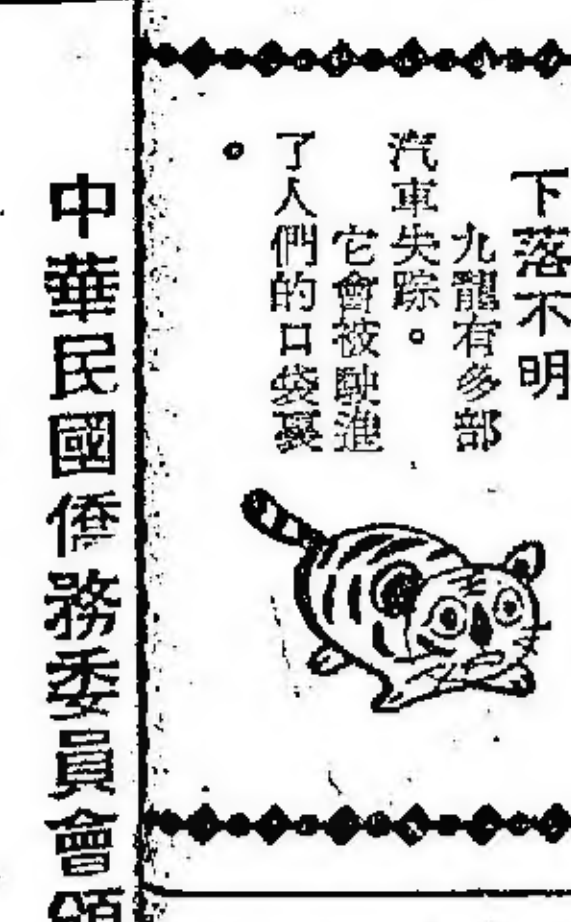 下落不明
九龍有多部
汽車失踪。
它會被駛進
了人們的口袋裏
。
中華民國僑務委員會頒